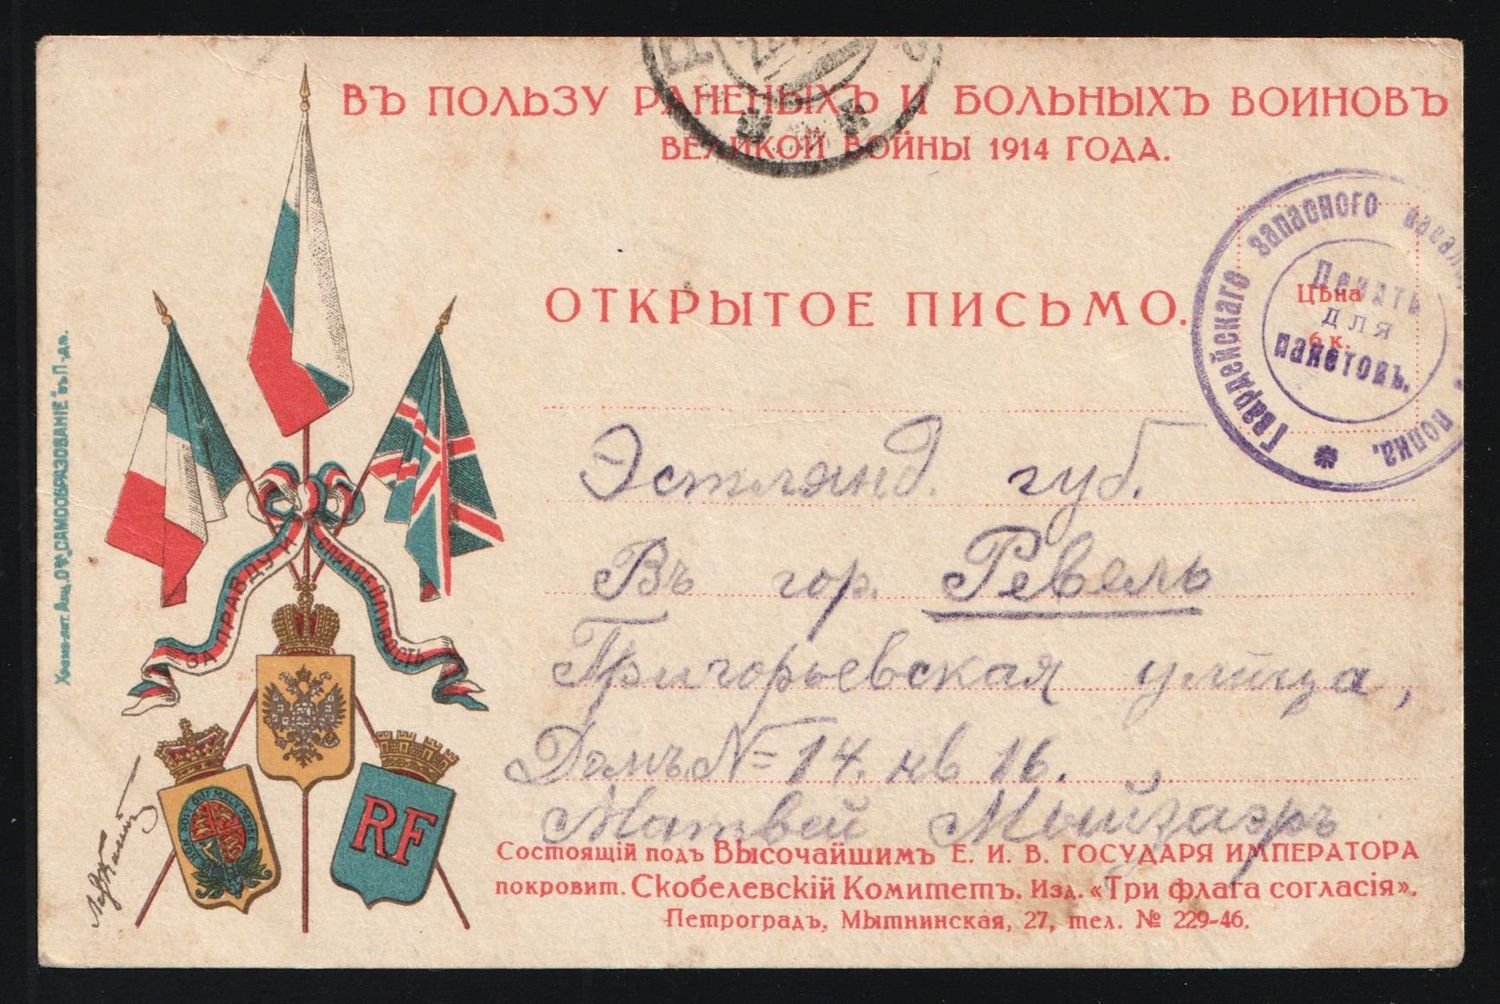 ВЪ ПОЛЬЗУ РАНЕНЫХЪ И БОЛЬНЫХЪ ВОИНОВЪ
ВЕЛИКОЙ ВОЙНЫ 1914 ГОДА.
ОТКРЫТОЕ ПИСЬМО.
Цѣна
6 к.
Гвардейскаго запасного полка.
Печать
для
пакетовъ.
Эстлянд. губ.
Въ гор. Ревель
Григорьевская улица,
Домъ № 14. кв 16.
Матвей Мыйзаэръ
ЗА ПРАВДУ И СПРАВЕДЛИВОСТЬ
RF
Состоящій подъ Высочайшимъ Е. И. В. ГОСУДАРЯ ИМПЕРАТОРА
покровит. Скобелевскій Комитетъ. Изд. «Три флага согласія».
Петроградъ, Мытнинская, 27, тел. № 229-46.
Хромо-лит. Акц. О-ва „САМООБРАЗОВАНІЕ" въ П-дѣ.